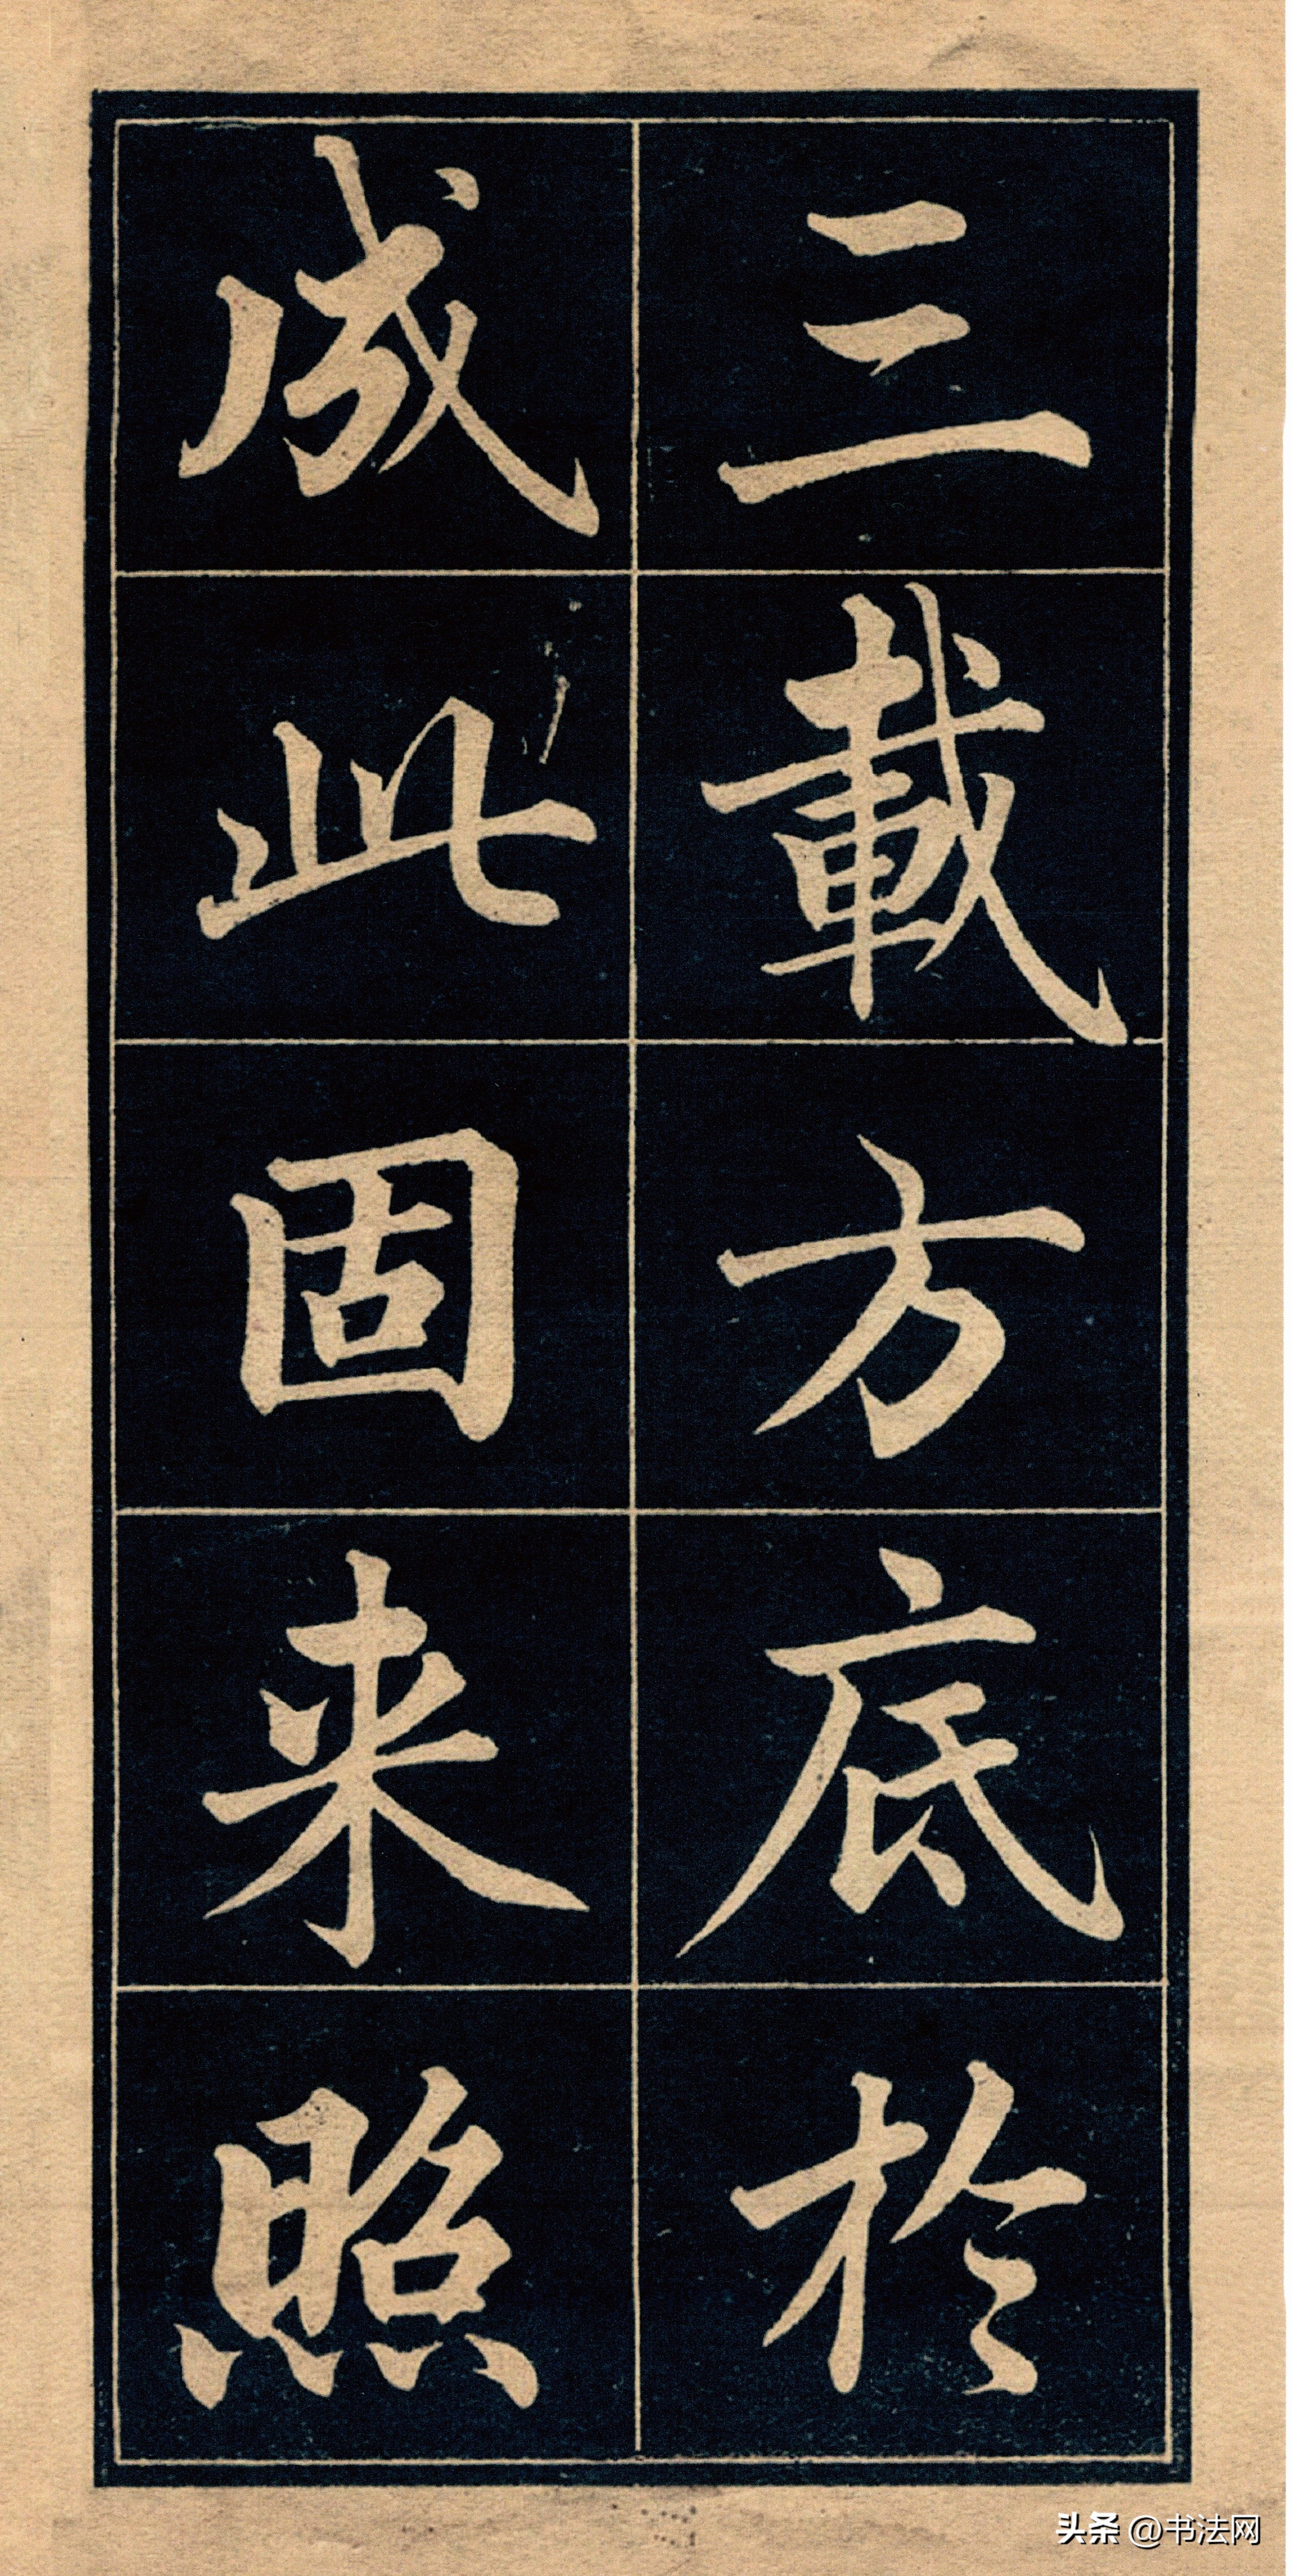 三載方底於
成此固来照
头条 @书法网